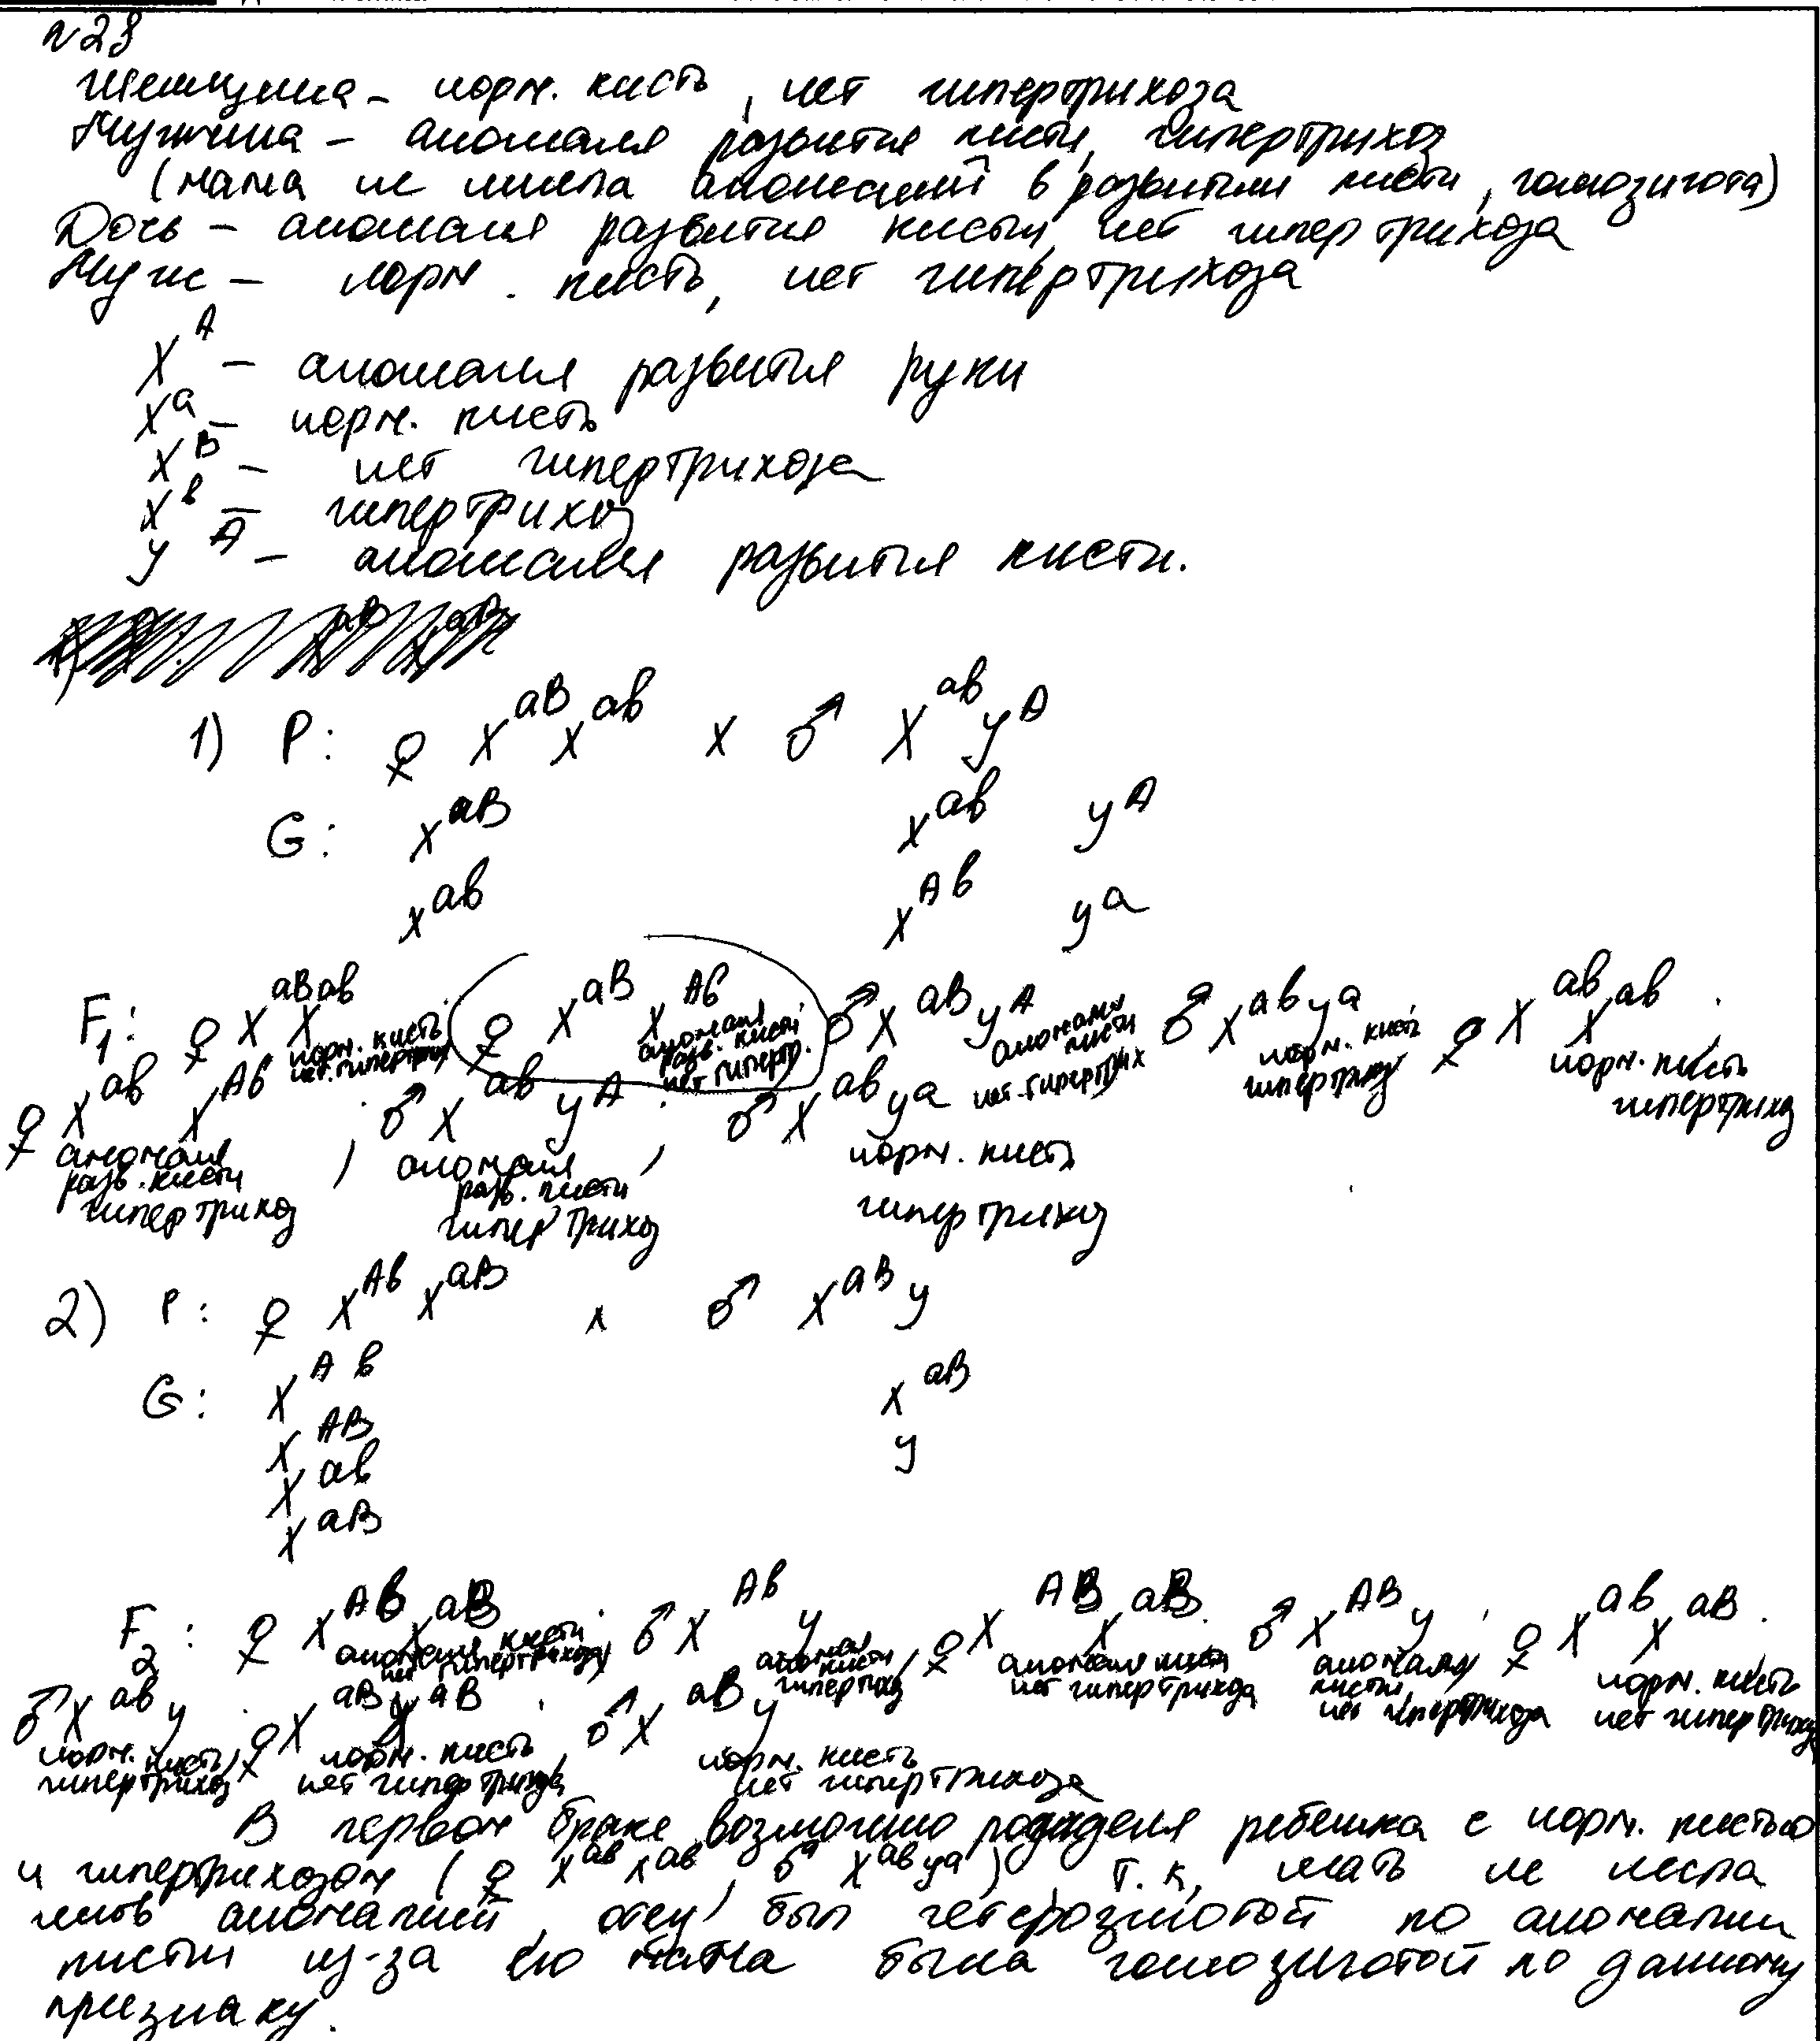 №28
Женщина – норм. кисть, нет гипертрихоза
Мужчина – аномалия развития кисти, гипертрихоз
(мама не имела аномалий в развитии кисти, гомозигота)
Дочь – аномалия развития кисти, нет гипертрихоза
Муж – норм. кисть, нет гипертрихоза
X^A – аномалия развития руки
X^a – норм. кисть
X^B – нет гипертрихоза
X^b – гипертрихоз
y^A – аномалия развития кисти.
1) P: ♀ X^aB X^ab x ♂ X^ab y^A
G: X^aB X^ab y^A
X^ab X^Ab y^a
F1: ♀ X^aB X^ab норм. кисть нет гипертрих ; ♀ X^aB X^Ab аномалия разв. кисти нет гипертр. ; ♂ X^aB y^A аномалия кисти нет гипертрих ♂ X^ab y^a норм. кисть гипертрихоз ; ♀ X^ab X^ab норм. кисть гипертрихоз
♀ X^ab X^Ab аномалия разв. кисти гипертрихоз , ♂ X^ab y^A аномалия разв. кисти гипертрихоз , ♂ X^ab y^a норм. кисть гипертрихоз
2) P: ♀ X^Ab X^aB x ♂ X^aB y
G: X^Ab X^aB
X^AB y
X^ab
X^aB
F2: ♀ X^Ab X^aB аномалия кисти нет гипертрихоза ; ♂ X^Ab y аномалия кисти гипертрихоз , ♀ X^AB X^aB аномалия кисти нет гипертрихоза ♂ X^AB y аномалия кисти нет гипертрихоза ; ♀ X^ab X^aB норм. кисть нет гипертрихоза
♂ X^ab y норм. кисть гипертрихоз , ♀ X^aB X^aB норм. кисть нет гипертрихоза , ♂ X^aB y норм. кисть нет гипертрихоза
В первом браке возможно рождения ребёнка с норм. кистью
и гипертрихозом (♀ X^ab X^ab, ♂ X^ab y^a), т.к, мать не
аномалий, отец был гетерозиготой по аномалии
кисти из-за его была гомозиготой по данному
признаку.